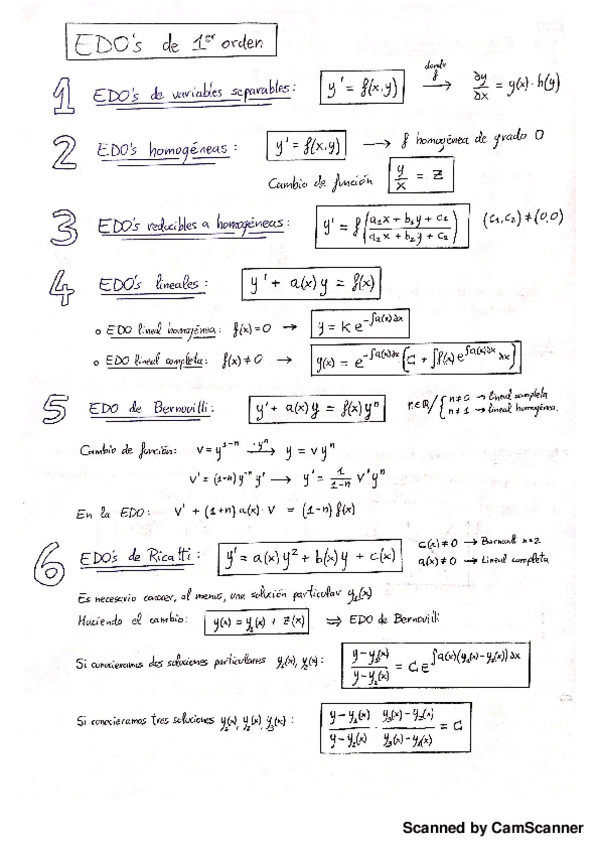 EDO's de 1er orden
1 EDO's de variables separables: y' = f(x,y) donde f → ∂y/∂x = g(x)·h(y)
2 EDO's homogéneas: y' = f(x,y) → f homogénea de grado 0
Cambio de función y/x = z
3 EDO's reducibles a homogéneas: y' = f((a₁x + b₁y + c₁)/(a₂x + b₂y + c₂)) (c₁,c₂) ≠ (0,0)
4 EDO's lineales: y' + a(x)y = f(x)
o EDO lineal homogénea: f(x)=0 → y = k e^{-∫a(x)∂x}
o EDO lineal completa: f(x)≠0 → y(x) = e^{-∫a(x)∂x}(C + ∫f(x)e^{∫a(x)∂x}∂x)
5 EDO de Bernouilli: y' + a(x)y = f(x)yⁿ n∈ℝ/{n≠0 → lineal completa
n≠1 → lineal homogénea.
Cambio de función: v = y^{1-n} →(·yⁿ) y = v yⁿ
v' = (1-n)y^{-n}y' → y' = 1/(1-n) v'yⁿ
En la EDO: v' + (1+n)a(x)·v = (1-n)f(x)
6 EDO's de Ricatti: y' = a(x)y² + b(x)y + c(x) c(x)≠0 → Bernouilli n=2
a(x)≠0 → Lineal completa
Es necesario conocer, al menos, una solución particular y₁(x)
Haciendo el cambio: y(x) = y₁(x) + z(x) ⇒ EDO de Bernouilli
Si conocieramos dos soluciones particulares y₁(x), y₂(x): (y-y₁(x))/(y-y₂(x)) = C e^{∫a(x)(y₁(x)-y₂(x))∂x}
Si conocieramos tres soluciones y₁(x), y₂(x), y₃(x): (y-y₁(x))/(y-y₂(x)) · (y₃(x)-y₂(x))/(y₃(x)-y₁(x)) = C
Scanned by CamScanner